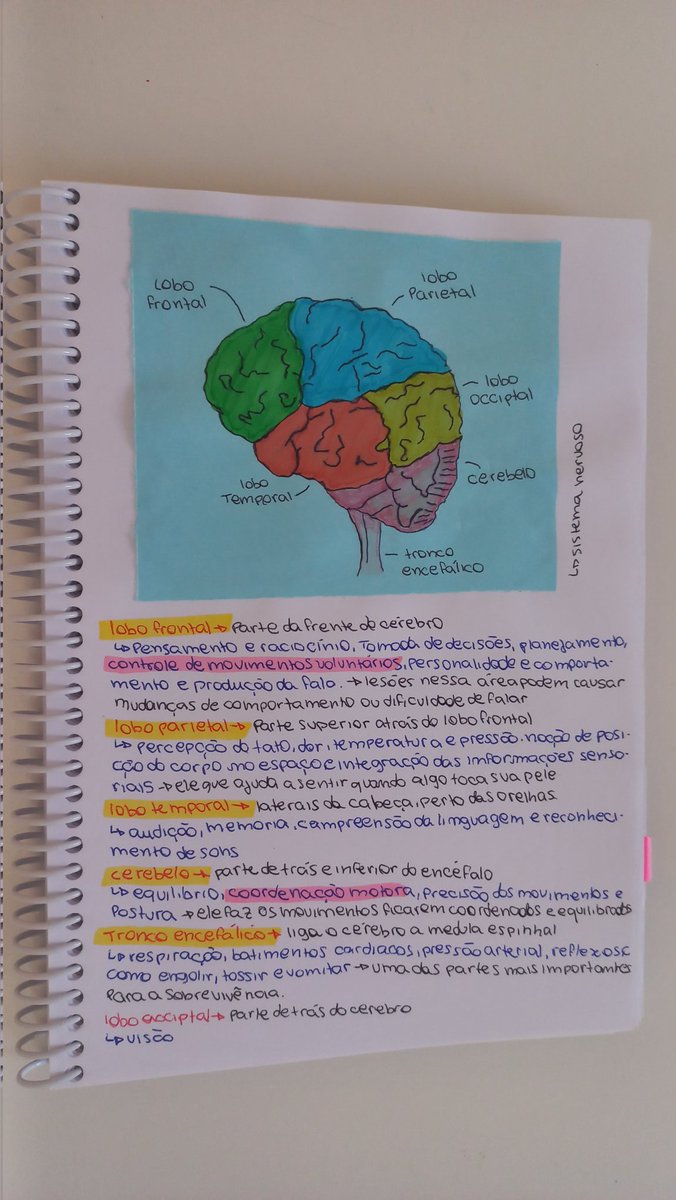 Lobo
frontal
lobo
Parietal
lobo
occiptal
cerebelo
lobo
Temporal
tronco
encefálico
↳ sistema nervoso
lobo frontal → Parte da frente do cérebro
↳ Pensamento e raciocínio, Tomada de decisões, planejamento,
controle de movimentos voluntários, Personalidade e comporta-
mento e produção da fala. → lesões nessa área podem causar
mudanças de comportamento ou dificuldade de falar
lobo parietal → Parte superior atrás do lobo frontal
↳ percepção do tato, dor, temperatura e pressão. noção de posi
ção do corpo no espaço e integração das informações senso-
riais → ele que ajuda a sentir quando algo toca sua pele
lobo temporal → laterais da cabeça, perto das orelhas
↳ audição, memória, compreensão da linguagem e reconheci-
mento de sons
cerebelo → parte de trás e inferior do encéfalo
↳ equilíbrio, coordenação motora, precisão dos movimentos e
Postura → ele faz os movimentos ficarem coordenados e equilibrados
Tronco encefálico → liga o cérebro a medula espinhal
↳ respiração, batimentos cardíacos, pressão arterial, reflexos
como engolir, tossir e vomitar → uma das partes mais importantes
Para a Sobrevivência.
lobo occiptal → Parte de trás do cerebro
↳ visão